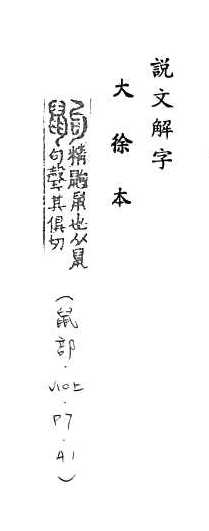 說文解字
大徐本
鼩
精鼩鼠也从鼠
句聲其俱切
(鼠部.V10上.P7.A1)